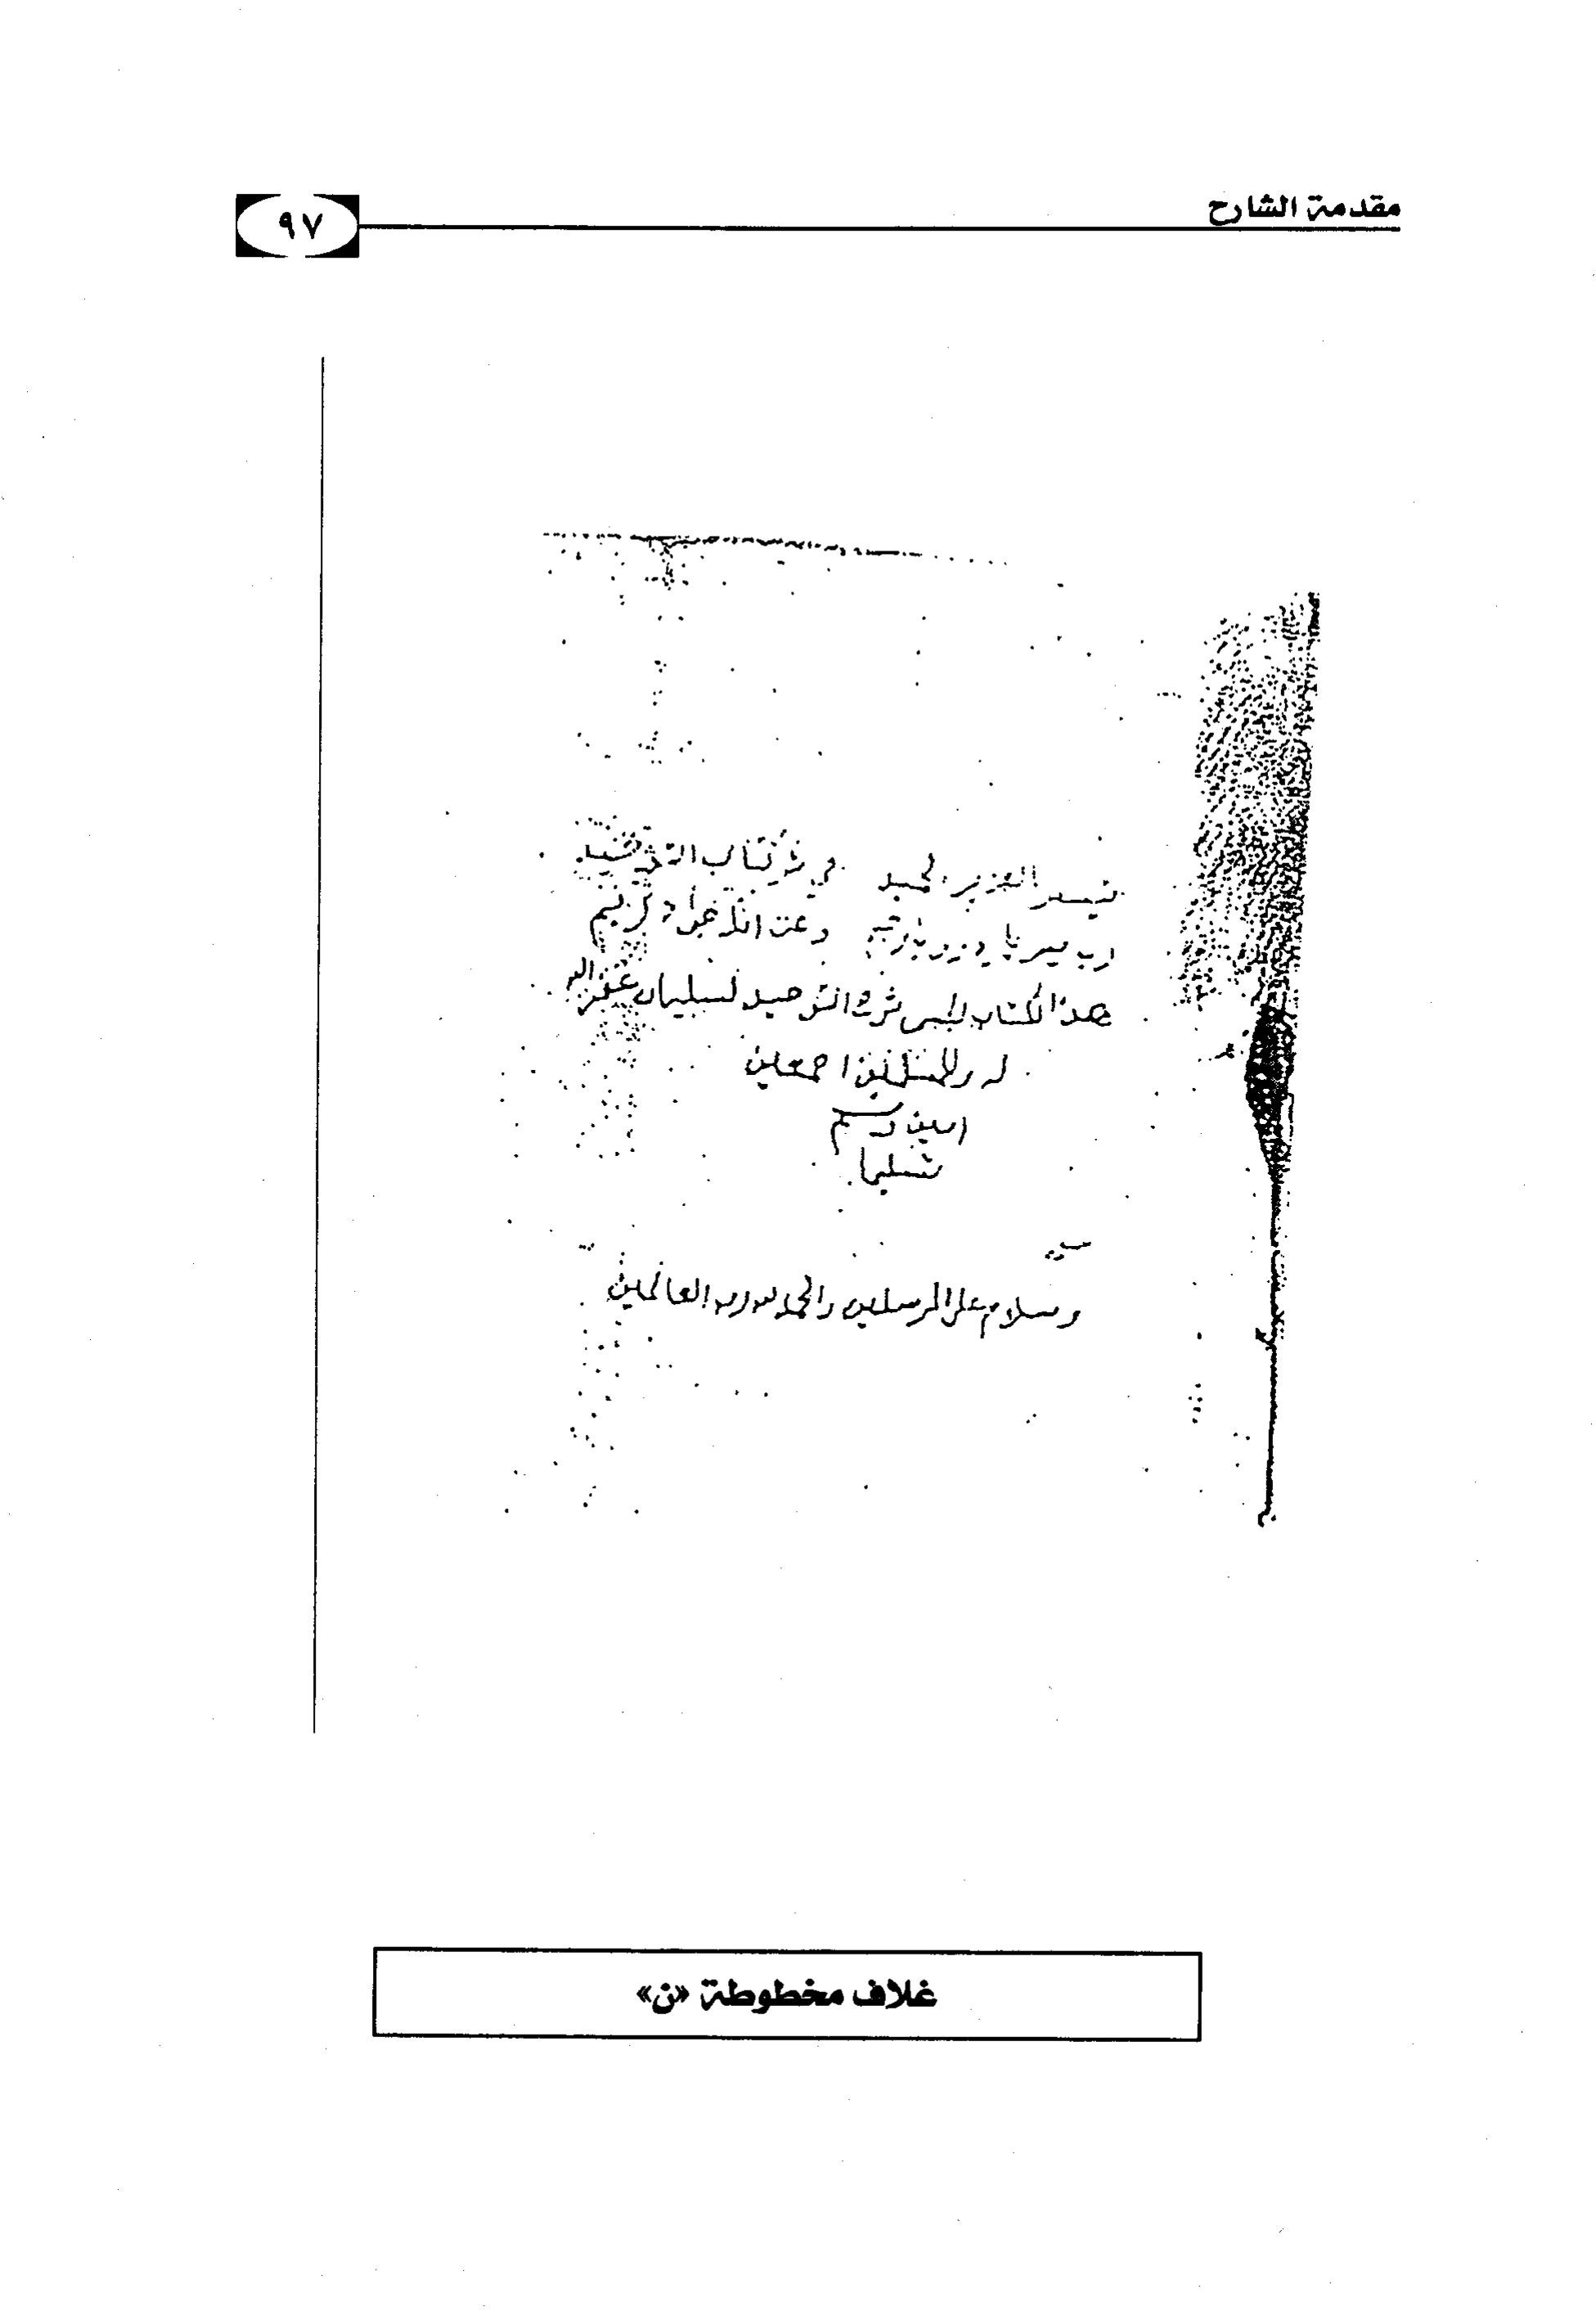 مقدمة الشارح
٩٧
تيسير العزيز الحميد في شرح كتاب التوحيد
رب يسر يا كريم
هذا الكتاب المسمى شرح التوحيد لسليمان غفر الله
له وللمسلمين اجمعين
امين وسلم
تسليما
وسلام على المرسلين والحمد لله رب العالمين
غلاف مخطوطة «ن»